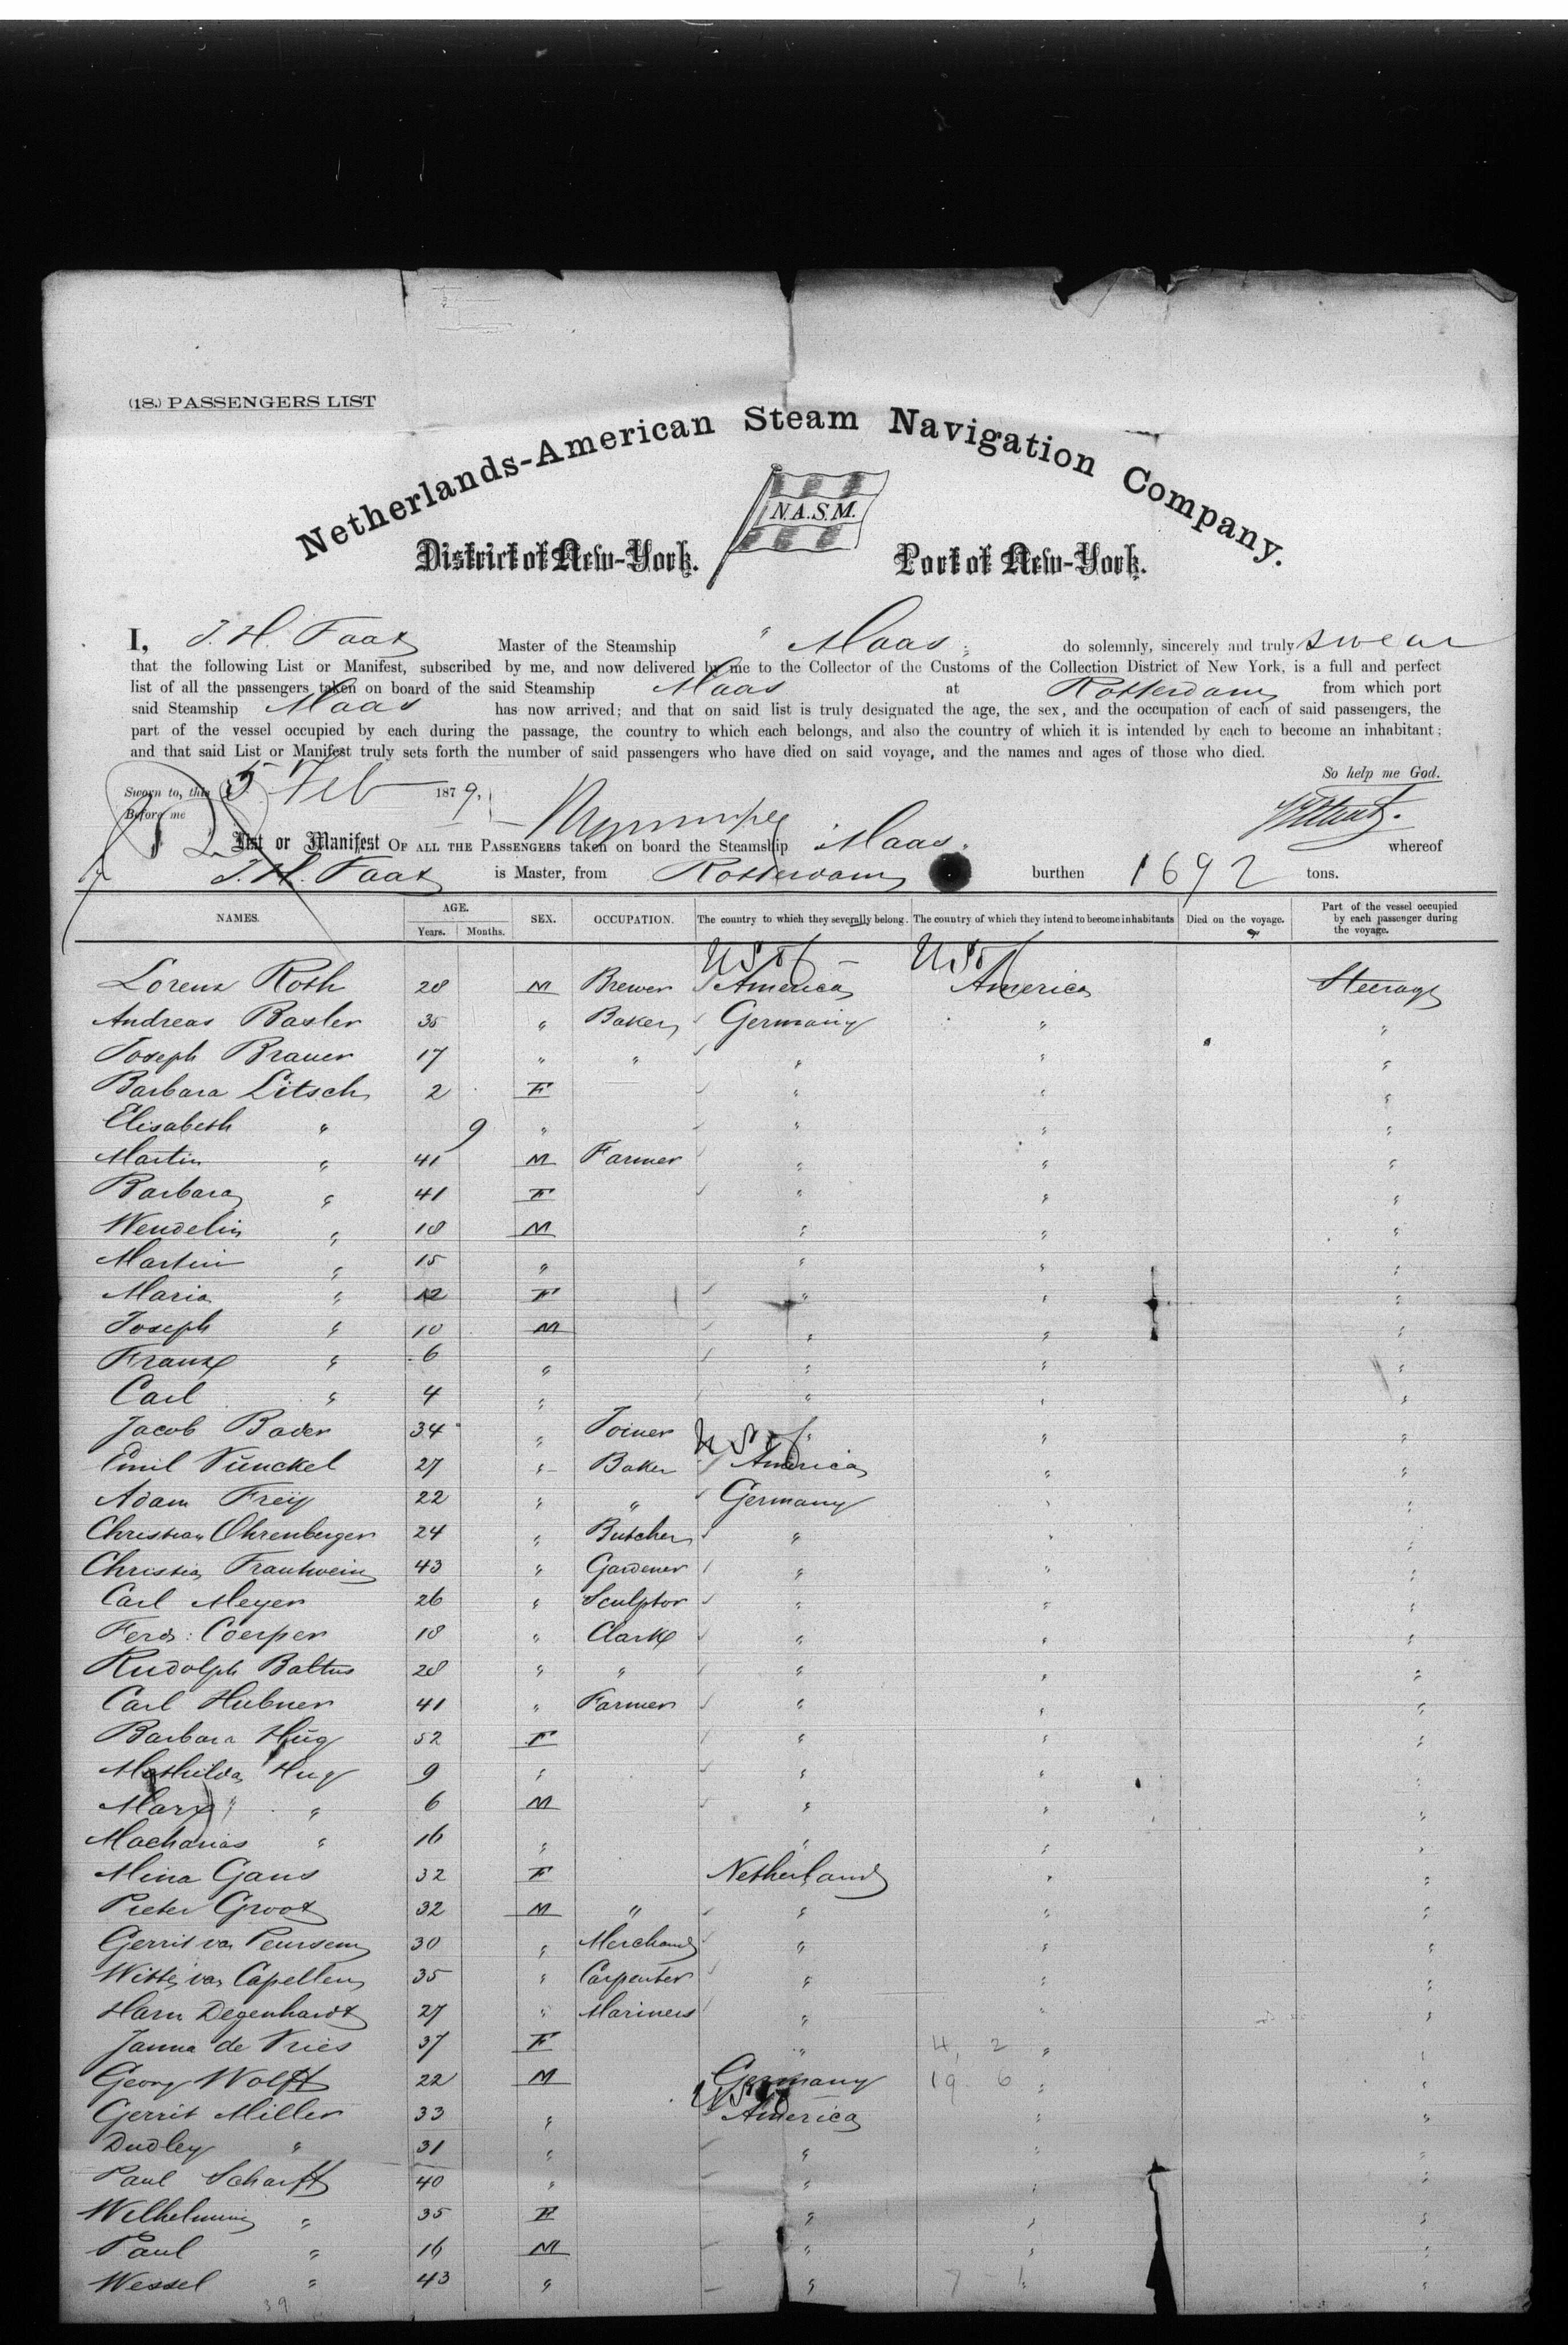 (18.) PASSENGERS LIST
Netherlands-American Steam Navigation Company.
N.A.S.M.
District of New-York. Port of New-York.
I, J. H. Taat Master of the Steamship "Maas" do solemnly, sincerely and truly swear
that the following List or Manifest, subscribed by me, and now delivered by me to the Collector of the Customs of the Collection District of New York, is a full and perfect
list of all the passengers taken on board of the said Steamship Maas at Rotterdam from which port
said Steamship Maas has now arrived; and that on said list is truly designated the age, the sex, and the occupation of each of said passengers, the
part of the vessel occupied by each during the passage, the country to which each belongs, and also the country of which it is intended by each to become an inhabitant;
and that said List or Manifest truly sets forth the number of said passengers who have died on said voyage, and the names and ages of those who died.
So help me God.
Sworn to, this 5 Feb 1879,
Before me
List or Manifest OF ALL THE PASSENGERS taken on board the Steamship Maas. whereof
J. H. Taat is Master, from Rotterdam burthen 1692 tons.
NAMES. AGE. Years. Months. SEX. OCCUPATION. The country to which they severally belong. The country of which they intend to become inhabitants Died on the voyage. Part of the vessel occupied by each passenger during the voyage.
U S of U S of
Lorenz Roth 28 M Brewer America America Steerage
Andreas Basler 35 " Baker Germany " "
Joseph Brauer 17 " " " " "
Barbara Litsch 2 F " " "
Elisabeth " 9 " " " "
Martin " 41 M Farmer " " "
Barbara " 41 F " " "
Wendelin " 18 M " " "
Martin " 15 " " " "
Maria " 12 F " " "
Joseph " 10 M " " "
Franz " 6 " " " "
Carl " 4 " " " "
Jacob Bader 34 " Joiner " " "
U S of
Emil Vünckel 27 " Baker America " "
Adam Freÿ 22 " " Germany " "
Christian Ohrenberger 24 " Butcher " " "
Christian Trautwein 43 " Gardener " " "
Carl Meyer 26 " Sculptor " " "
Ferd: Coerper 18 " Clark " " "
Rudolph Baltus 28 " " " " "
Carl Hubner 41 " Farmer " " "
Barbara Hüg 52 F " " "
Mathilda Hug 9 " " " "
Marx " 6 M " " "
Macharias " 16 " " " "
Mina Gans 32 F Netherland " "
Pieter Groot 32 M " " " "
Gerrit van Peursem 30 " Merchant " " "
Witte van Capellen 35 " Carpenter " " "
Harm Degenhardt 27 " Mariners " " "
Janna de Vries 37 F " 4, 2 " "
Georg Wolff 22 M Germany 19 6 " "
U S of
Gerrit Miller 33 " America " "
Dudley " 31 " " " "
Paul Scharff 40 " " " "
Wilhelmine " 35 F " " "
Paul " 16 M " " "
Wessel " 43 " " 7 1 " "
39